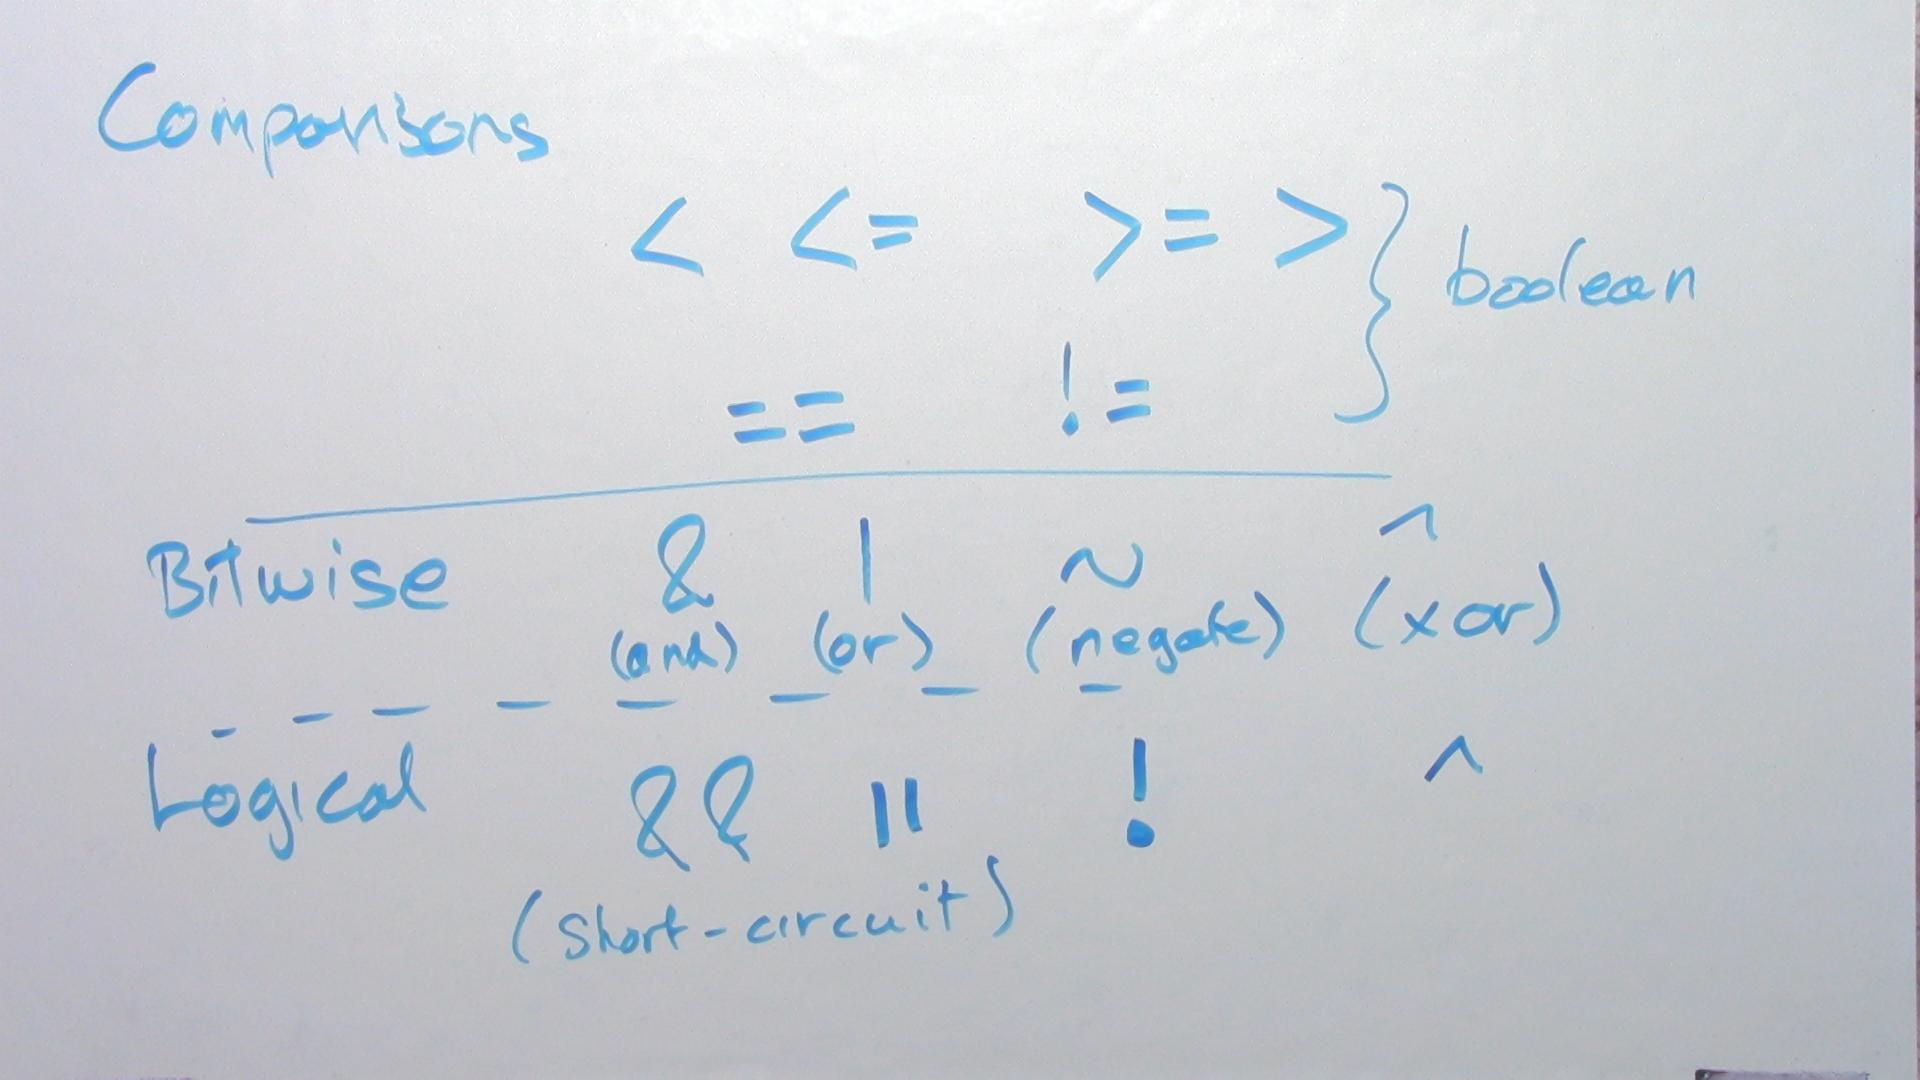 Comparisons
< <= >= > } boolean
== !=
Bitwise & | ~ ^
(and) (or) (negate) (xor)
Logical && || ! ^
(short-circuit)